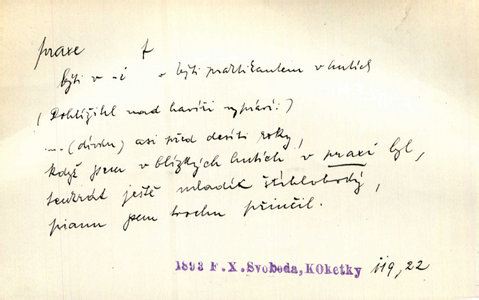 praxe f
býti v -i = býti praktikantem v hutích
(Dohlížitel nad havíři vypráví:)
... (dívku) asi před desíti roky,
když jsem v blízkých hutích v praxi byl,
tenkrát ještě mladík štíhlobodrý,
psanu jsem trochu přinčil.
1893 F.X.Svoboda, KOketky 119, 22